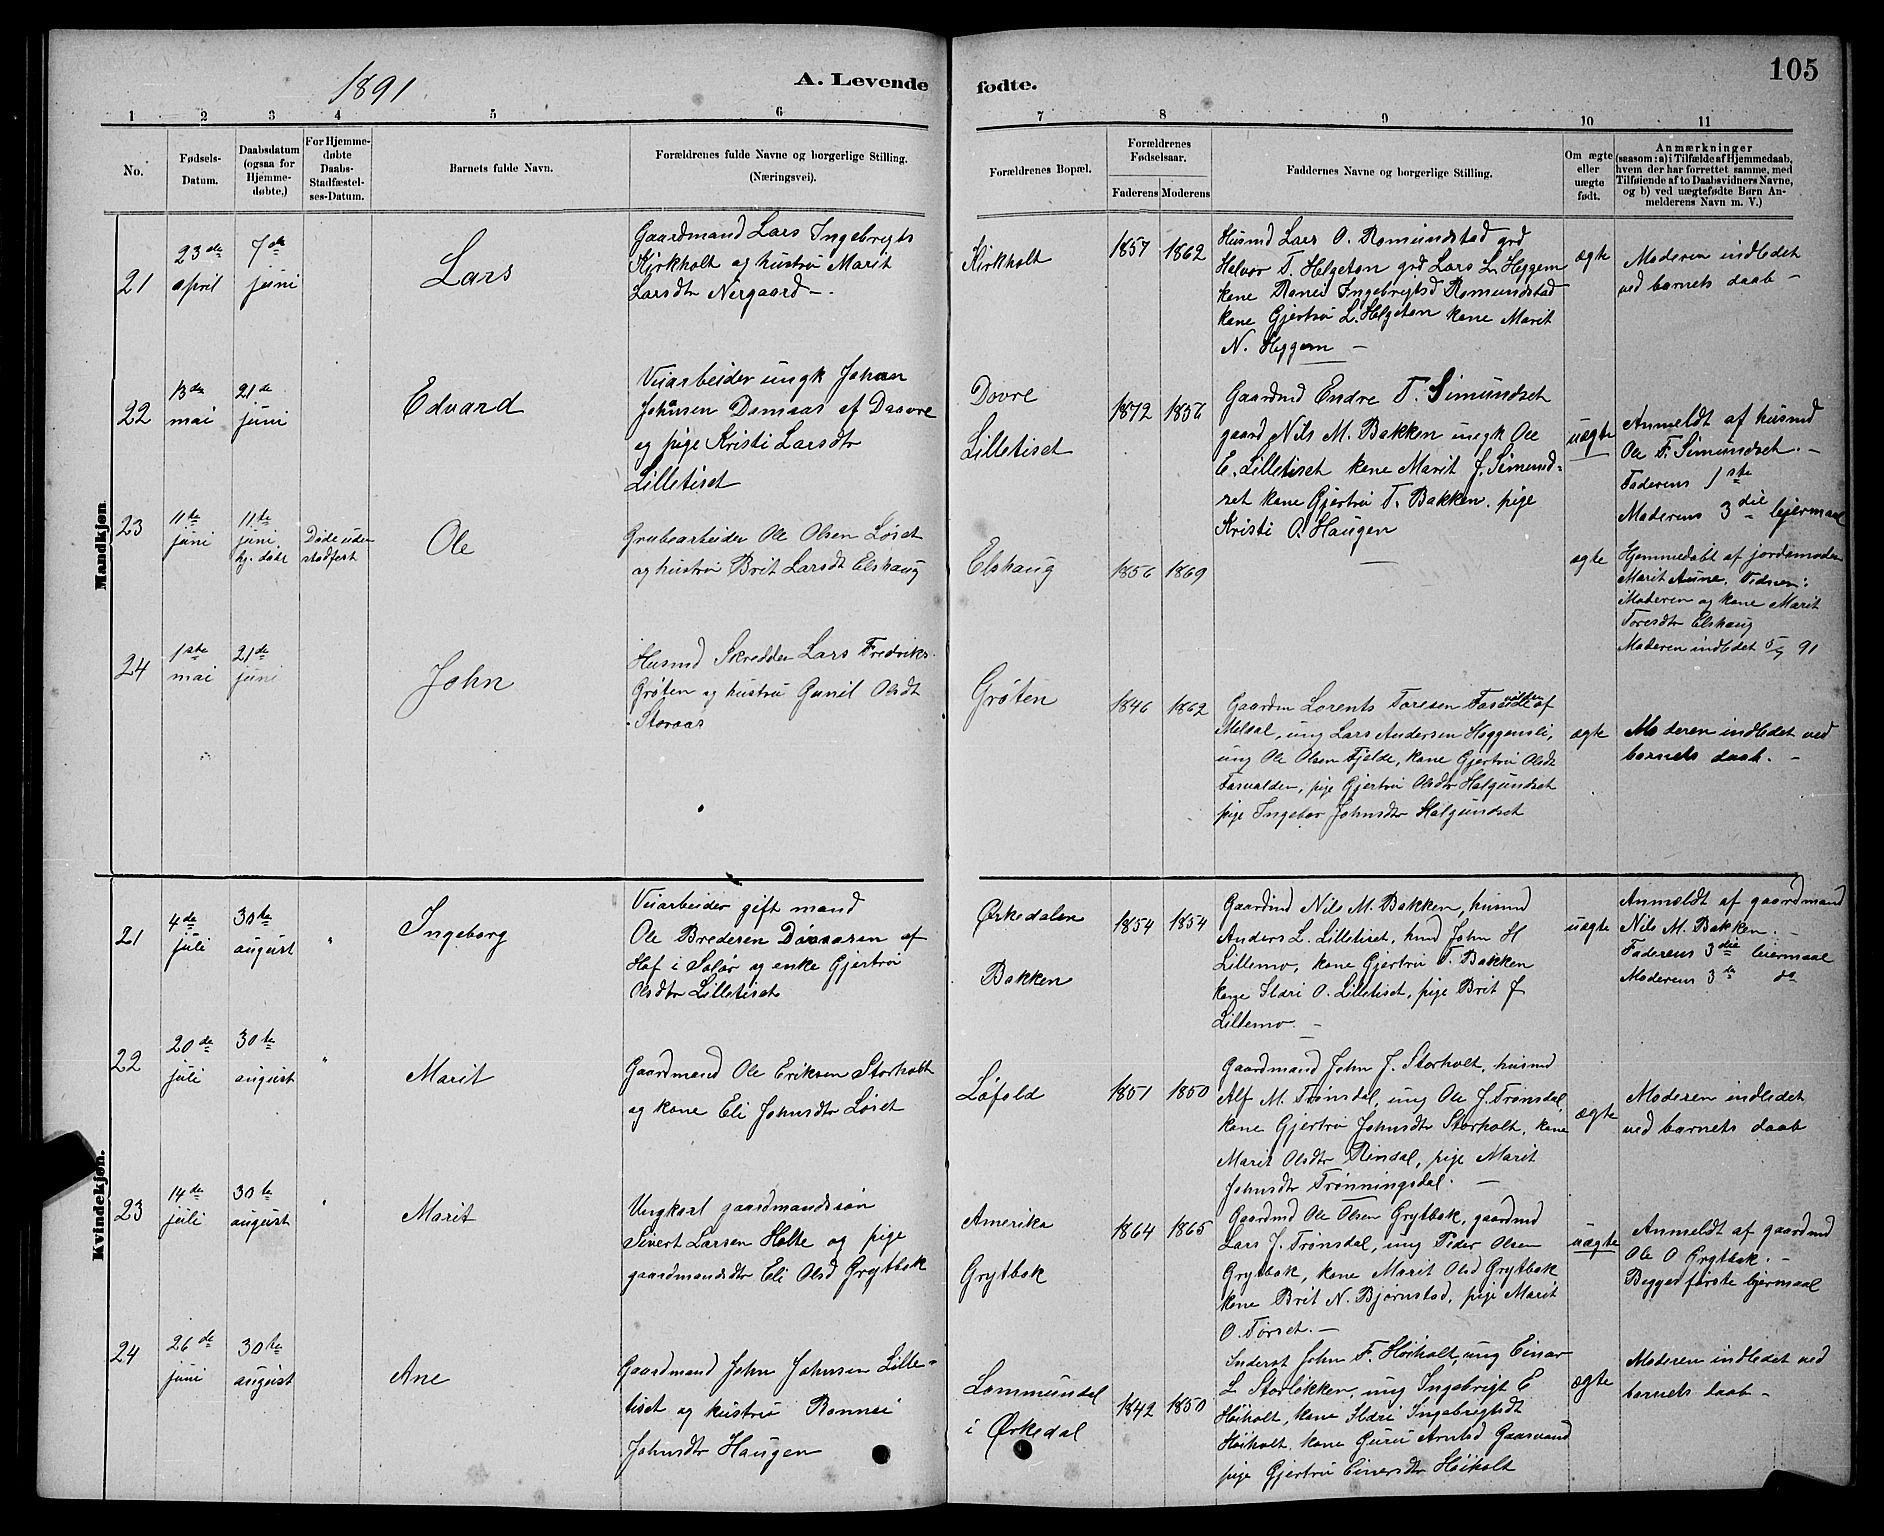 1891
A. Levende
fødte.
105
1 2 3 4 5 6 7 8 9 10 11
No.
Fødsels-
Datum.
Daabsdatum
(ogsaa for
Hjemme-
døbte.)
For Hjemme-
døbte
Daabs-
Stadfæstel-
ses-Datum.
Barnets fulde Navn.
Forældrenes fulde Navne og borgerlige Stilling.
(Næringsvei).
Forældrenes Bopæl.
Forældrenes
Fødselsaar.
Faderens Moderens
Faddernes Navne og borgerlige Stilling.
Om ægte
eller
uægte
født.
Anmærkninger
(saasom: a) i Tilfælde af Hjemmedaab,
hvem der har forrettet samme, med
Tilføiende af to Daabsvidners Navne,
og b) ved uægtefødte Børn An-
melderens Navn m. V.)
Mandkjøn
21
23de
april
7de
juni
Lars
Gaardmand Lars Ingebrigts
Kirkholt og hustru Marit
Larsdtr Nergaard —.
Kirkholt
1857 1862
Husmd Lars O. Romundstad grd
Halvor T. Helgeton grd Lars L. Heggem
kone Ranei Ingebrigtsd Romundstad
kone Gjertru L. Helgeton kone Marit
N. Heggem —
ægte
Moderen indledet
ved barnets daab —
22
13de
mai
21de
juni
Edvard
Veiarbeider ungk Johan
Johnsen Domaas af Daavre
og pige Kristi Larsdtr
Lilletiset
Dovre
Lilletiset
1872 1856
Gaardmd Endre T. Simundset
gaard Nils M. Bakken ungk Ole
E. Lilletiset kone Marit J. Simund-
set kone Gjertru T. Bakken. pige
Kristi O. Haugen
uægte
Anmeldt af husmd
Ole T. Simundset. —
Faderens 1ste
Moderens 3die leiermaal
23
11te
juni
11te
juni
hj. døbt
Døde uden
stadfest
Ole
Grubearbeider Ole Olsen Løset
og hustru Brit Larsdt Elshaug
Elshaug
1856 1869
—
ægte
Hjemmedøbt af jordemoder
Marit Aune. Vidner:
Moderen og kone Marit
Toresdtr Elshaug
Moderen indledet 5/7 91
24
1ste
mai
21de
juni
John
Husmd Skredder Lars Fredriks.
Grøten og hustru Gunil Olsdt
Storaas
Grøten
1846 1862
Gaardm Lorents Toresen Fasvolden af
Meldal, ung Lars Andersen Heggemsli,
ung Ole Olsen Fjelde, kone Gjertru Olsdt
Fasvolden, pige Gjertru Olsdtr Halgundset
pige Ingebor Johnsdtr Halgundset
ægte
Moderen indledet ved
barnets daab. —
Kvindekjøn.
21
4de
juli
30te
august
"
Ingeborg
Veiarbeider gift mand
Ole Bredesen af
Hof i Solør og enke Gjertru
Olsdtr Lilletiset
Ørkedalen
Bakken
1854 1854
Gaardmd Nils M. Bakken, husmd
Anders L. Lilletiset, hmd John H
Lillemo, kone Gjertru T. Bakken
kone Ildri O. Lilletiset, pige Brit J
Lillemo. —
uægte
Anmeldt af gaardmand
Nils M. Bakken. —
Faderens 3die leiermaal
Moderens 3te do
22
20de
juli
30te
august
"
Marit
Gaardmand Ole Eriksen Storholt
og kone Eli Johnsdtr Løset
Løfold
1851 1850
Gaardmand John J. Storholt, husmd
Alf M. Trønsdal, ung Ole J. Trønsdal,
kone Gjertru Johnsdtr Storholt, kone
Marit Olsdtr Rindal, pige Marit
Johnsdtr Trønningsdal. —
ægte
Moderen indledet
ved barnets daab
23
14de
juli
30te
august
"
Marit
Ungkarl gaardmandssøn
Sivert Larsen Holte og pige
gaardmandsdtr Eli Olsd Grytbak
Amerika
Grytbak
1864 1865
Gaardmd Ole Olsen Grytbak, gaardmd
Lars J. Trønsdal, ung Peder Olsen
Grytbak, kone Marit Olsd Grytbak
kone Brit N. Bjørnstad, pige Marit
O. Tørset. —
uægte
Anmeldt af gaardmd
Ole O Grytbak. —
Begges første leiermaal
24
26de
juni
30te
august
Ane
Gaardmand John Johnsen Lille-
tiset og hustru Rannei
Johnsdtr Haugen
Lommundal
i Ørkedal
1842 1850
Inderst John F. Høiholt, ung Einar
L Storløkken, ung Ingebrigt E
Høiholt, kone Ildri Ingebrigtsdt
Høiholt, kone Guru Arntsd Gaasvand
pige Gjertru Einersdtr Høiholt
ægte
Moderen indledet ved
barnets daab —